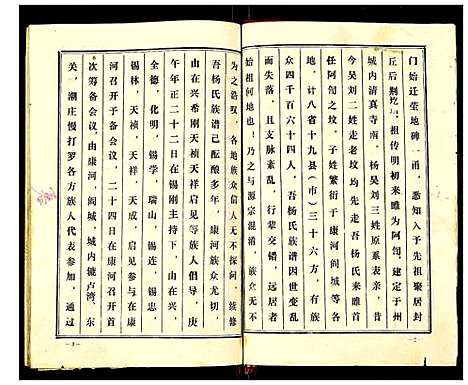 门始迁茔地碑一甬，悉知入予先祖聚居封
丘后荆圪垱，祖传明初来睢为阿訇，建定于州
城内清真寺南，杨吴刘三姓原系表亲，昔
今吴刘二姓走老坟均先走吾杨氏来睢首
任阿訇之坟，子姓繁衍于康河阎城等各
地，计八省十九县（市）三十六方，有族
众四千百六十四人，吾杨氏族谱因世变乱
而失落，且支脉紊乱，行辈交错，远居者
始祖何地也！乃之与源宗混淆，族众无不
—2—
为之诸叹，各地族众信人无不探问，续修
吾杨氏族谱已酝酿多年，康河族众尤切，
由在兴希刚天祯天祥启见等族人倡导，庚
午年正二十二日在锡刚主持下，由在兴，
全德，化明，锡学，瑞山，锡连，锡忠，
锡林，天祯，天祥，天成，启见参与在康
河召开予备会议，二十四日在康河召开首
次筹备会议，由康河，阎城，城内辘卢湾，东
关，潮庄慢打罗各方族人代表参加，通过
—3—